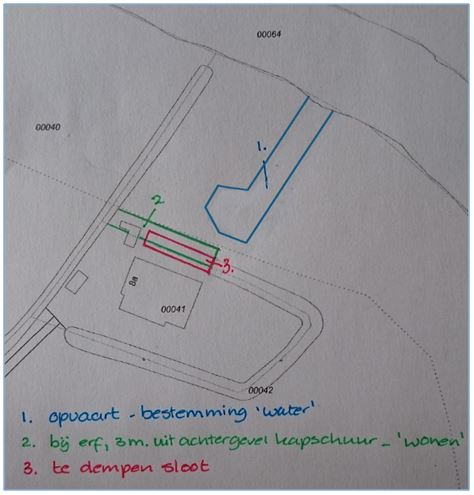 00064
00040
1.
2
3.
8a
00041
00042
1. opvaart - bestemming 'water'
2. bij erf, 3m. uit achtergevel kapschuur - 'wonen'
3. te dempen sloot